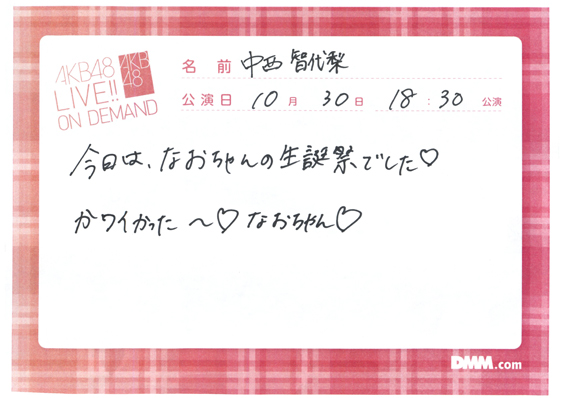 AKB48
LIVE!!
ON DEMAND
AKB
48
名 前 中西 智代梨
公演日 10月 30日 18:30 公演
今日は、なおちゃんの生誕祭でした♡
かワイかった 〜♡ なおちゃん♡
DMM.com